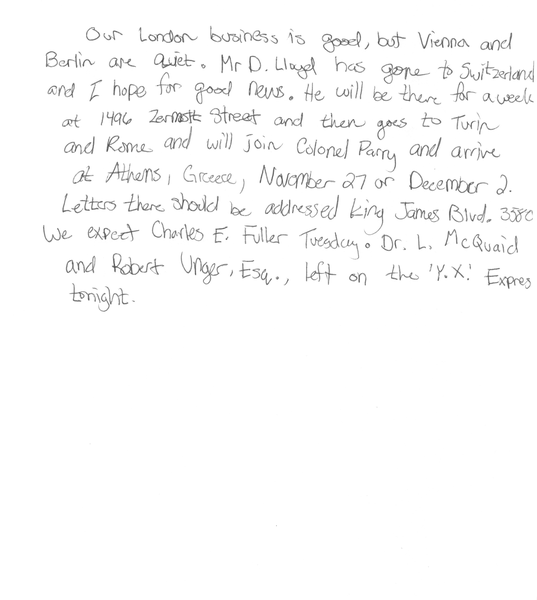 Our London business is good, but Vienna and
Berlin are quiet. Mr D. Lloyd has gone to Switzerland
and I hope for good news. He will be there for a week
at 1496 Zermott Street and then goes to Turin
and Rome and will join Colonel Parry and arrive
at Athens, Greece, November 27 or December 2.
Letters there should be addressed King James Blvd. 3580
We expect Charles E. Fuller Tuesday. Dr. L. McQuaid
and Robert Unger, Esq., left on the 'Y.X.' Expres
tonight.